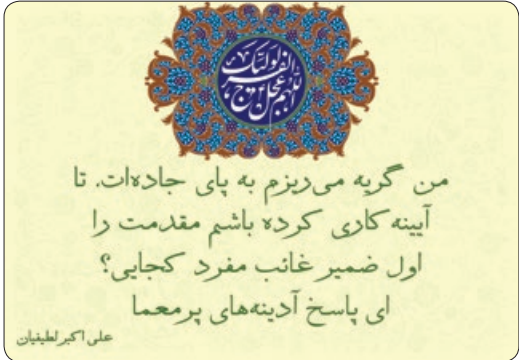 اللهم عجل لولیک الفرج
من گریه می‌ریزم به پای جاده‌ات. تا
آیینه کاری کرده باشم مقدمت را
اول ضمیر غائب مفرد کجایی؟
ای پاسخ آدینه‌های پرمعما
علی اکبر لطیفیان